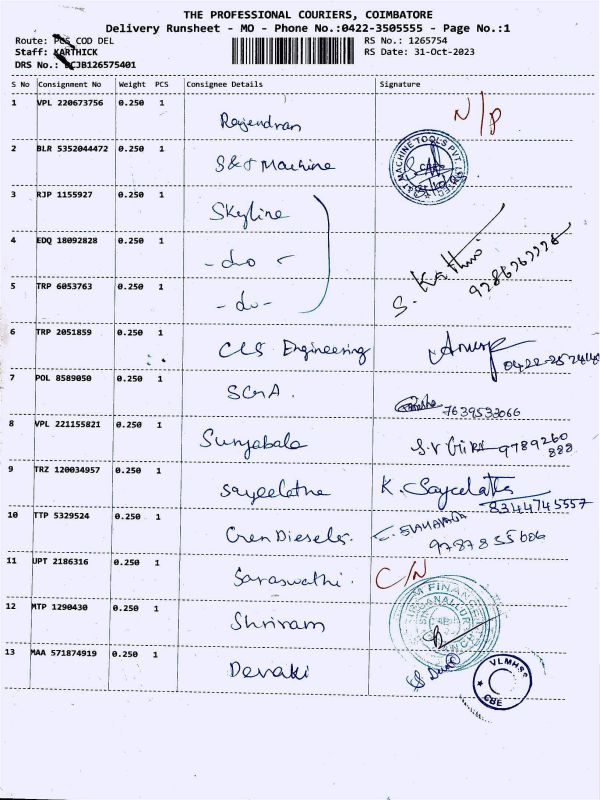 THE PROFESSIONAL COURIERS, COIMBATORE
Delivery Runsheet - MO - Phone No.:0422-3505555 - Page No.:1
Route: PCS COD DEL RS No.: 1265754
Staff: KARTHICK RS Date: 31-Oct-2023
DRS No.: CJB126575401
S No Consignment No Weight PCS Consignee Details Signature
1 VPL 220673756 0.250 1 Rajendran N/P
2 BLR 5352044472 0.250 1 S&T Machine MACHINE TOOLS PVT.
3 RJP 1155927 0.250 1 Skyline
4 EDQ 18092828 0.250 1 -do- S. Karthini
5 TRP 6053763 0.250 1 -do-
6 TRP 2051859 0.250 1 CLS Engineering
7 POL 8589050 0.250 1 SGA. 7639533066
8 VPL 221155821 0.250 1 Suryabala S.V Giri 9789260
888
9 TRZ 120034957 0.250 1 Sayeelatha K. Sayeelatha
8344745557
10 TTP 5329524 0.250 1 Gren Diesels. 9787855606
11 UPT 2186316 0.250 1 Saraswathi. C/N
12 MTP 1290430 0.250 1 Shriram
13 MAA 571874919 0.250 1 Devaki VLMHSS
CBE